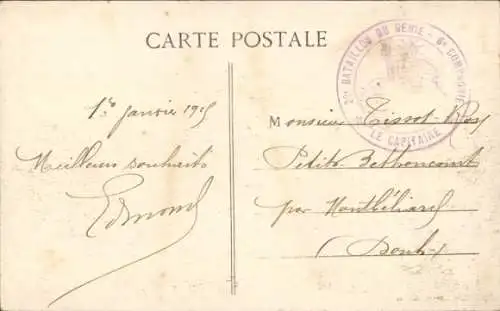 CARTE POSTALE
BATAILLON DU GENIE - 6e COMPAGNIE
LE CAPITAINE
1er Janvier 1915
Meilleurs souhaits
Edmond
Monsieur Tissot-
Petit Bethoncourt
par Montbéliard
(Doubs)